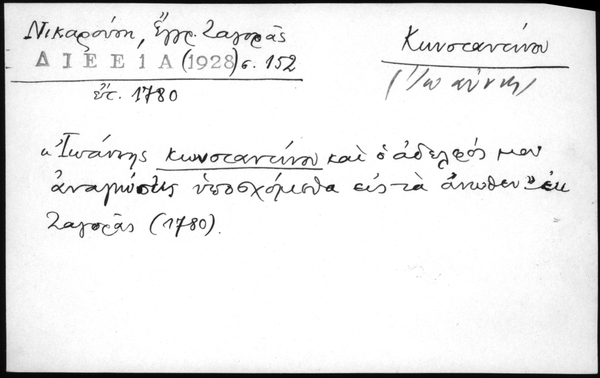 Νικαρούση, Ἔγγρ. Ζαγορᾶς
ΔΙΕΕ 1Α (1928) σ. 152
ἔτ. 1780
Κωνσταντίνου
(Ἰωάννης)
"Ἰωάννης Κωνσταντίνου καὶ ὁ ἀδελφός μου
ἀναγνώστης ὑποσχόμεθα εἰς τὰ ἄνωθεν" ἐκ
Ζαγορᾶς (1780).